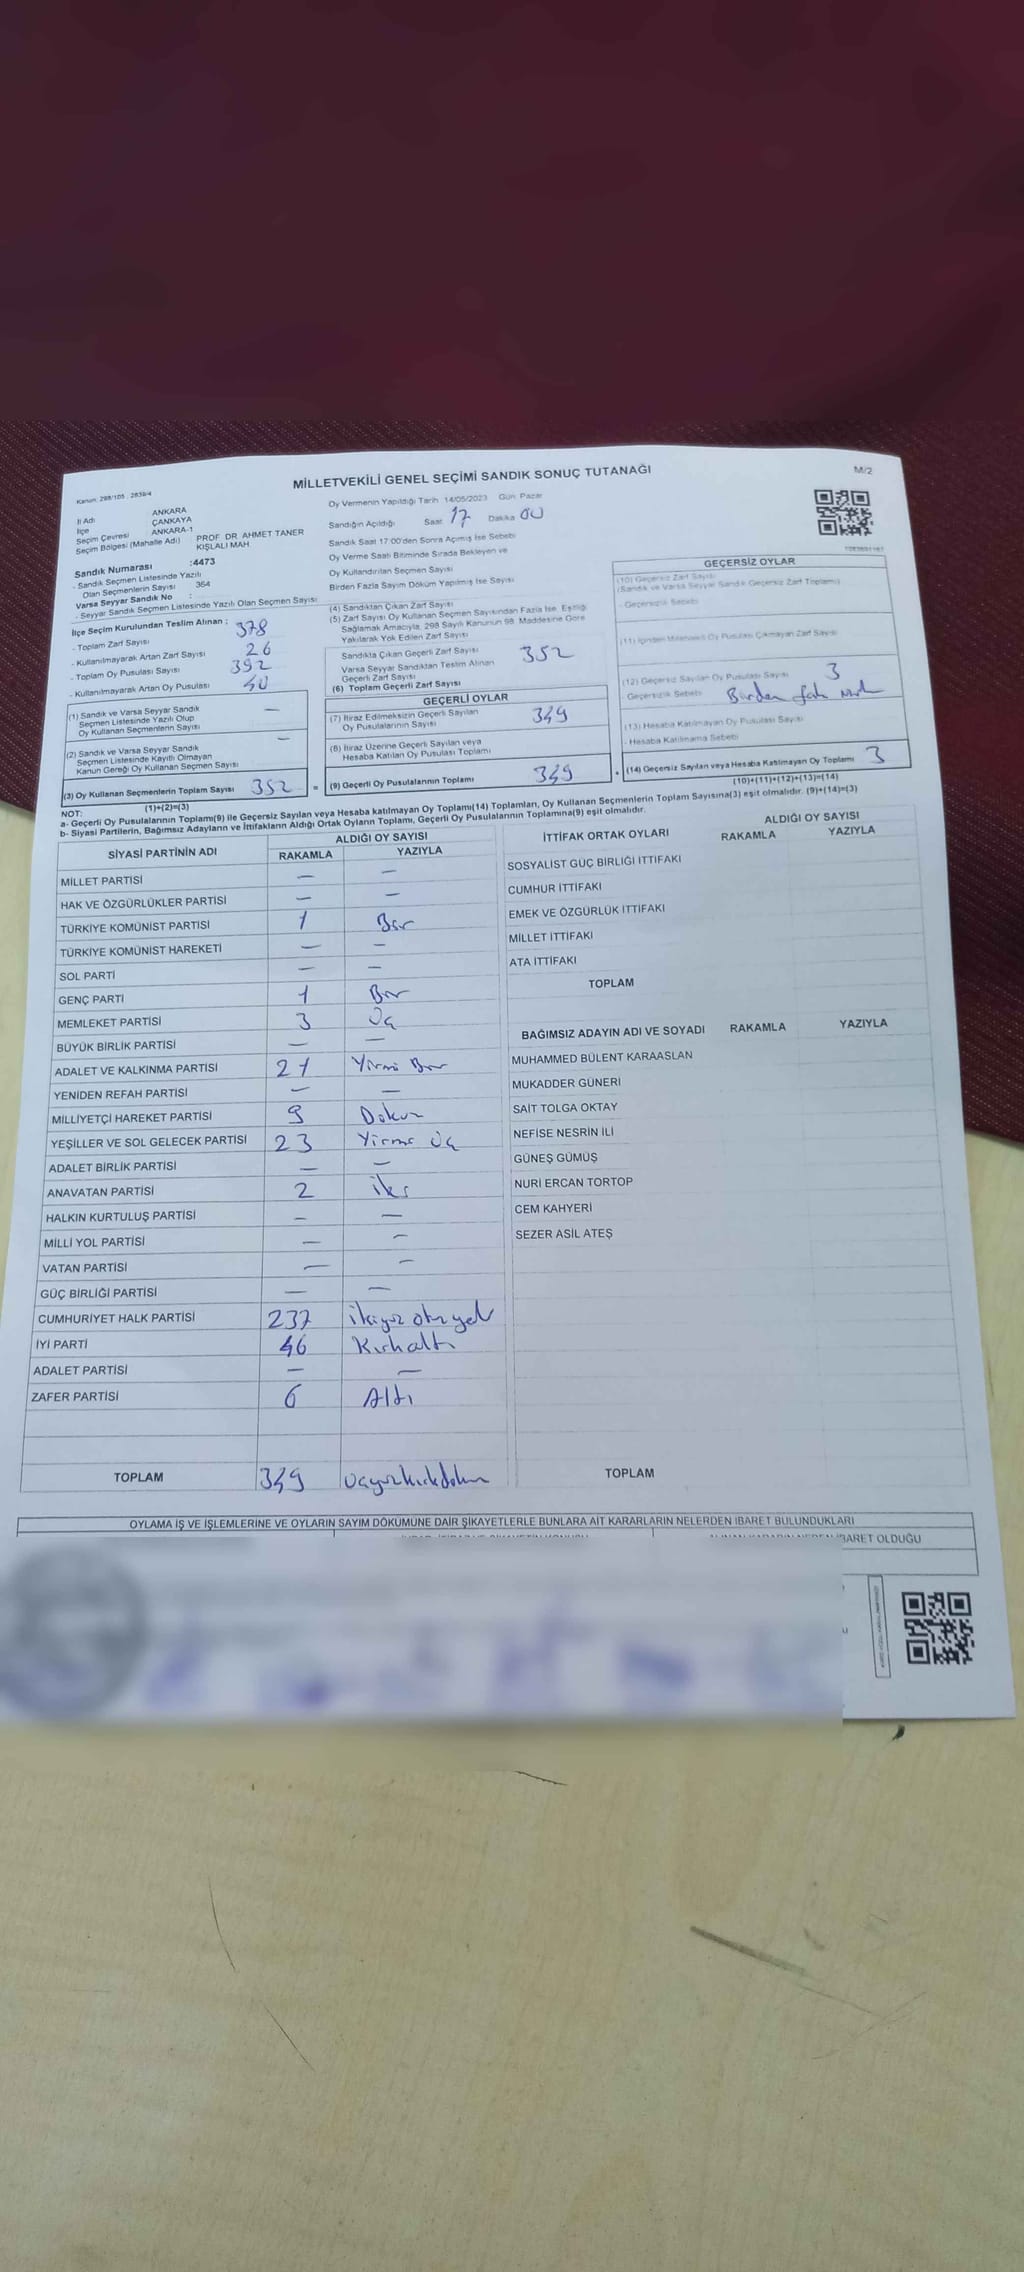 MİLLETVEKİLİ GENEL SEÇİMİ SANDIK SONUÇ TUTANAĞI
M/2
Kanun: 298/105 , 2839/4
İl Adı ANKARA
İlçe ÇANKAYA
Seçim Çevresi ANKARA-1
Seçim Bölgesi (Mahalle Adı) PROF DR AHMET TANER KIŞLALI MAH
Sandık Numarası :4473
- Sandık Seçmen Listesinde Yazılı
Olan Seçmenlerin Sayısı 364
Varsa Seyyar Sandık No :
- Seyyar Sandık Seçmen Listesinde Yazılı Olan Seçmen Sayısı
Oy Vermenin Yapıldığı Tarih 14/05/2023 Gün Pazar
Sandığın Açıldığı Saat 17 Dakika 00
Sandık Saat 17:00'den Sonra Açımış İse Sebebi
Oy Verme Saati Bitiminde Sırada Bekleyen ve
Oy Kullandırılan Seçmen Sayısı
Birden Fazla Sayım Döküm Yapılmış İse Sayısı
İlçe Seçim Kurulundan Teslim Alınan :
- Toplam Zarf Sayısı 378
- Kullanılmayarak Artan Zarf Sayısı 26
- Toplam Oy Pusulası Sayısı 392
- Kullanılmayarak Artan Oy Pusulası 40
(1) Sandık ve Varsa Seyyar Sandık
Seçmen Listesinde Yazılı Olup
Oy Kullanan Seçmenlerin Sayısı —
(2) Sandık ve Varsa Seyyar Sandık
Seçmen Listesinde Kayıtlı Olmayan
Kanun Gereği Oy Kullanan Seçmen Sayısı —
(3) Oy Kullanan Seçmenlerin Toplam Sayısı 352 =
(1)+(2)=(3)
(4) Sandıktan Çıkan Zarf Sayısı
(5) Zarf Sayısı Oy Kullanan Seçmen Sayısından Fazla İse, Eşitliği
Sağlamak Amacıyla, 298 Sayılı Kanunun 98. Maddesine Göre
Yakılarak Yok Edilen Zarf Sayısı
Sandıkta Çıkan Geçerli Zarf Sayısı 352
Varsa Seyyar Sandıktan Teslim Alınan
Geçerli Zarf Sayısı
(6) Toplam Geçerli Zarf Sayısı
GEÇERLİ OYLAR
(7) İtiraz Edilmeksizin Geçerli Sayılan
Oy Pusulalarının Sayısı 349
(8) İtiraz Üzerine Geçerli Sayılan veya
Hesaba Katılan Oy Pusulası Toplamı
(9) Geçerli Oy Pusulalarının Toplamı 349 +
GEÇERSİZ OYLAR
(10) Geçersiz Zarf Sayısı
(Sandık ve Varsa Seyyar Sandık Geçersiz Zarf Toplamı)
- Geçersizlik Sebebi
(11) İçinden Milletvekili Oy Pusulası Çıkmayan Zarf Sayısı
(12) Geçersiz Sayılan Oy Pusulası Sayısı 3
Geçersizlik Sebebi Birden
(13) Hesaba Katılmayan Oy Pusulası Sayısı
- Hesaba Katılmama Sebebi
(14) Geçersiz Sayılan veya Hesaba Katılmayan Oy Toplamı 3
(10)+(11)+(12)+(13)=(14)
NOT:
a- Geçerli Oy Pusulasının Toplamı(9) ile Geçersiz Sayılan veya Hesaba katılmayan Oy Toplamı(14) Toplamları, Oy Kullanan Seçmenlerin Toplam Sayısına(3) eşit olmalıdır. (9)+(14)=(3)
b- Siyasi Partilerin, Bağımsız Adayların ve İttifakların Aldığı Ortak Oyların Toplamı, Geçerli Oy Pusulalarının Toplamına(9) eşit olmalıdır.
SİYASİ PARTİNİN ADI ALDIĞI OY SAYISI
RAKAMLA YAZIYLA
MİLLET PARTİSİ — —
HAK VE ÖZGÜRLÜKLER PARTİSİ — —
TÜRKİYE KOMÜNİST PARTİSİ 1 Bir
TÜRKİYE KOMÜNİST HAREKETİ — —
SOL PARTİ — —
GENÇ PARTİ 1 Bir
MEMLEKET PARTİSİ 3 Üç
BÜYÜK BİRLİK PARTİSİ — —
ADALET VE KALKINMA PARTİSİ 21 Yirmi Bir
YENİDEN REFAH PARTİSİ — —
MİLLİYETÇİ HAREKET PARTİSİ 9 Dokuz
YEŞİLLER VE SOL GELECEK PARTİSİ 23 Yirmi Üç
ADALET BİRLİK PARTİSİ — —
ANAVATAN PARTİSİ 2 iki
HALKIN KURTULUŞ PARTİSİ — —
MİLLİ YOL PARTİSİ — —
VATAN PARTİSİ — —
GÜÇ BİRLİĞİ PARTİSİ — —
CUMHURİYET HALK PARTİSİ 237 ikiyüz otuz yedi
İYİ PARTİ 46 Kırkaltı
ADALET PARTİSİ — —
ZAFER PARTİSİ 6 Altı
TOPLAM 349 üçyüzkırkdokuz
İTTİFAK ORTAK OYLARI ALDIĞI OY SAYISI
RAKAMLA YAZIYLA
SOSYALİST GÜÇ BİRLİĞİ İTTİFAKI
CUMHUR İTTİFAKI
EMEK VE ÖZGÜRLÜK İTTİFAKI
MİLLET İTTİFAKI
ATA İTTİFAKI
TOPLAM
BAĞIMSIZ ADAYIN ADI VE SOYADI RAKAMLA YAZIYLA
MUHAMMED BÜLENT KARAASLAN
MUKADDER GÜNERİ
SAİT TOLGA OKTAY
NEFİSE NESRİN İLİ
GÜNEŞ GÜMÜŞ
NURİ ERCAN TORTOP
CEM KAHYERİ
SEZER ASİL ATEŞ
TOPLAM
OYLAMA İŞ VE İŞLEMLERİNE VE OYLARIN SAYIM DÖKÜMÜNE DAİR ŞİKAYETLERLE BUNLARA AİT KARARLARIN NELERDEN İBARET BULUNDUKLARI
İBARET OLDUĞU